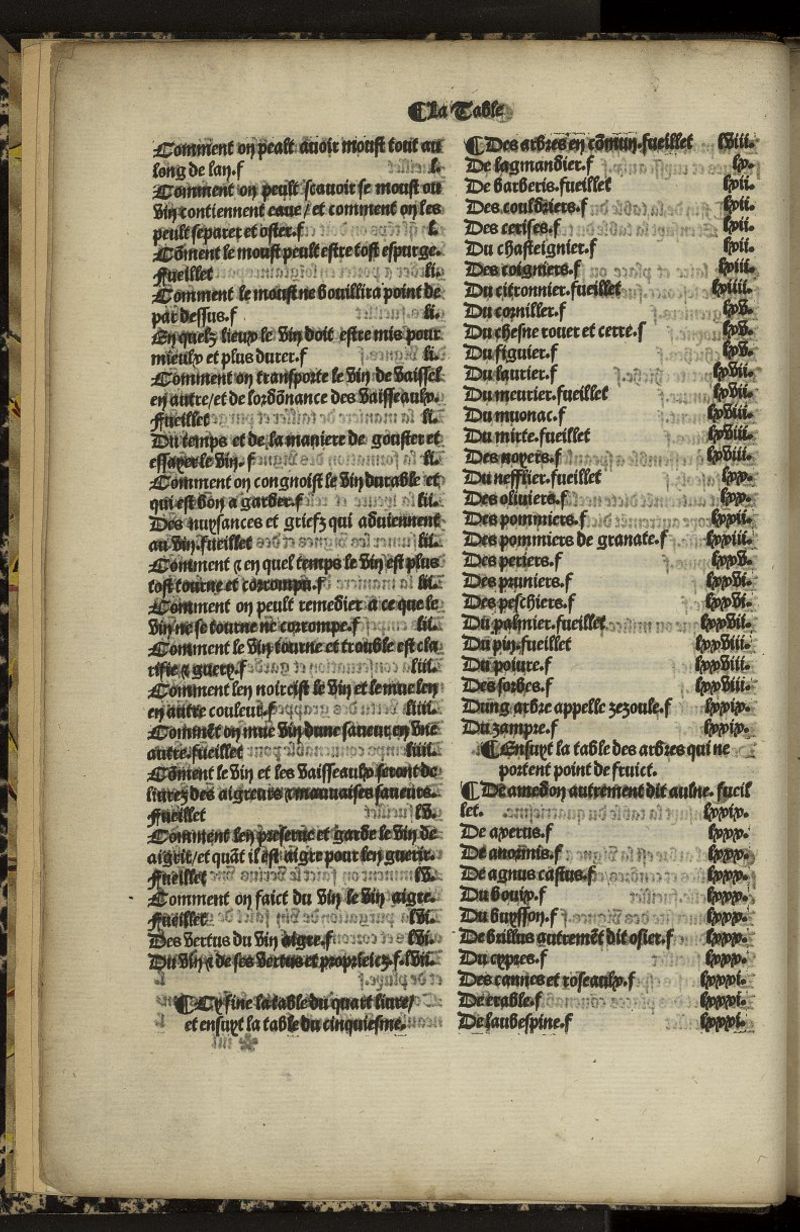 ¶La Table
Comment on peult auoir moust tout au
long de lan.f l.
Comment on peult scauoir se moust ou
vin contiennent eaue/et comment on les
peult separer et oster.f l.
Cõment le moust peult estre tost espurge.
fueillet li.
Comment le moust ne bouillira point de
par dessus.f li.
En quelz lieux le vin doit estre mis pour
mieulx et plus durer.f li.
Comment on transporte le vin de vaissel
en autre/et de lordõnance des vaisseaulx.
fueillet li.
Du temps et de la maniere de gouster et
essayer le vin.f li.
Comment on congnoist le vin durable et
qui est bon a garder.f lii.
Des nuysances et griefz qui aduiennent
au vin.fueillet lii.
Comment ⁊ en quel temps le vin est plus
tost tourne et corrompu.f lii.
Comment on peult remedier a ce que le
vin ne se tourne ne corrompe.f lii.
Comment le vin tourne et trouble est cla
rifie ⁊ guery.f liii.
Comment len noircist le vin et le mue len
en autre couleur.f liiii.
Commẽt on mue vin dune saueur en vne
autre.fueillet liiii.
Cõment le vin et les vaisseaulx seront de
liurez des aigreurs ⁊ mauuaises saueurs.
fueillet lv.
Comment len preserue et garde le vin de
aigrir/et quãt il est aigre pour len guerir.
fueillet lv.
Comment on faict du vin le vin aigre.
fueillet lvi.
Des vertus du vin aigre.f lvi.
Du vin ⁊ de ses vertus et proprietez.f.lvii.
¶Cy fine la table du quart liure/
et ensuyt la table du cinquiesme.
¶Des arbres en cõmun.fueillet lviii.
De lagmandier.f lx.
De barberis.fueillet lxii.
Des couldriers.f lxii.
Des cerises.f lxii.
Du chasteignier.f lxii.
Des coigniers.f lxiii.
Du citronnier.fueillet lxiiii.
Du cornillet.f lxv.
Du chesne rouer et cerre.f lxv.
Du figuier.f lxv.
Du laurier.f lxvii.
Du meurier.fueillet lxvii.
Du muonac.f lxviii.
Du mirte.fueillet lxviii.
Des noyers.f lxviii.
Du nefflier.fueillet lxx.
Des oliuiers.f lxx.
Des pommiers.f lxxii.
Des pommiers de granate.f lxxiii.
Des periers.f lxxv.
Des pruniers.f lxxvi.
Des peschiers.f lxxvi.
Du palmier.fueillet lxxvii.
Du pin.fueillet lxxviii.
Du poiure.f lxxviii.
Des sorbes.f lxxviii.
Dung arbre appelle zezoule.f lxxix.
Du zampre.f lxxix.
¶Ensuyt la table des arbres qui ne
portent point de fruict.
¶De amedon autrement dit aulne. fueil
let. lxxix.
De auerus.f lxxx.
De anoumis.f lxxx.
De agnus castus.f lxxx.
Du bouix.f lxxx.
Du buysson.f lxxx.
De brillus autremẽt dit osier.f lxxx.
Du cypres.f lxxx.
Des cannes et roseaulx.f lxxxi.
De erable.f lxxxi.
De laubespine.f lxxxi.